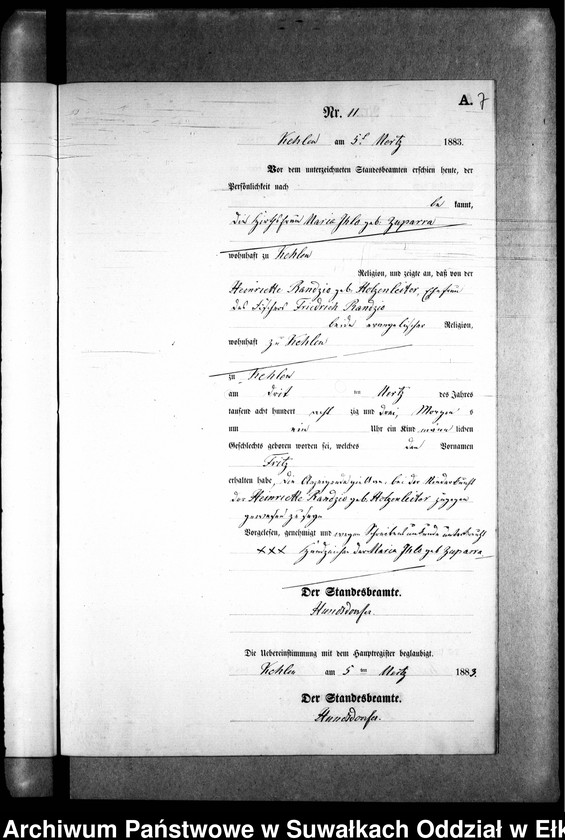 A. 7
Nr. 11
Kehlen am 5t Mertz 1883.
Vor dem unterzeichneten Standesbeamten erschien heute, der
Persönlichkeit nach
be kannt,
die Maria Ihlo geb: Zuparra
wohnhaft zu Kehlen
Religion, und zeigte an, daß von der
Heinriette Randzio geb. Holzenleiter, Ehefrau
des Fischers Friedrich Randzio
beide evangelischer Religion,
wohnhaft zu Kehlen
zu Kehlen
am drit ten Mertz des Jahres
tausend acht hundert acht zig und drei, Morgen s
um ein Uhr ein Kind männ lichen
Geschlechts geboren worden sei, welches den Vornamen
Fritz
erhalten habe, die Anzeigende bei der Niederkunft
der Heinriette Randzio geb. Holzenleiter zugegen
gewesen zu sein
Vorgelesen, genehmigt und wegen Schreibensunkunde unterkreuzt
XXX Handzeichen der Maria Ihlo geb Zuparra
Der Standesbeamte.
Die Uebereinstimmung mit dem Hauptregister beglaubigt.
Kehlen am 5 ten Mertz 1883.
Der Standesbeamte.
Archiwum Państwowe w Suwałkach Oddział w Ełk